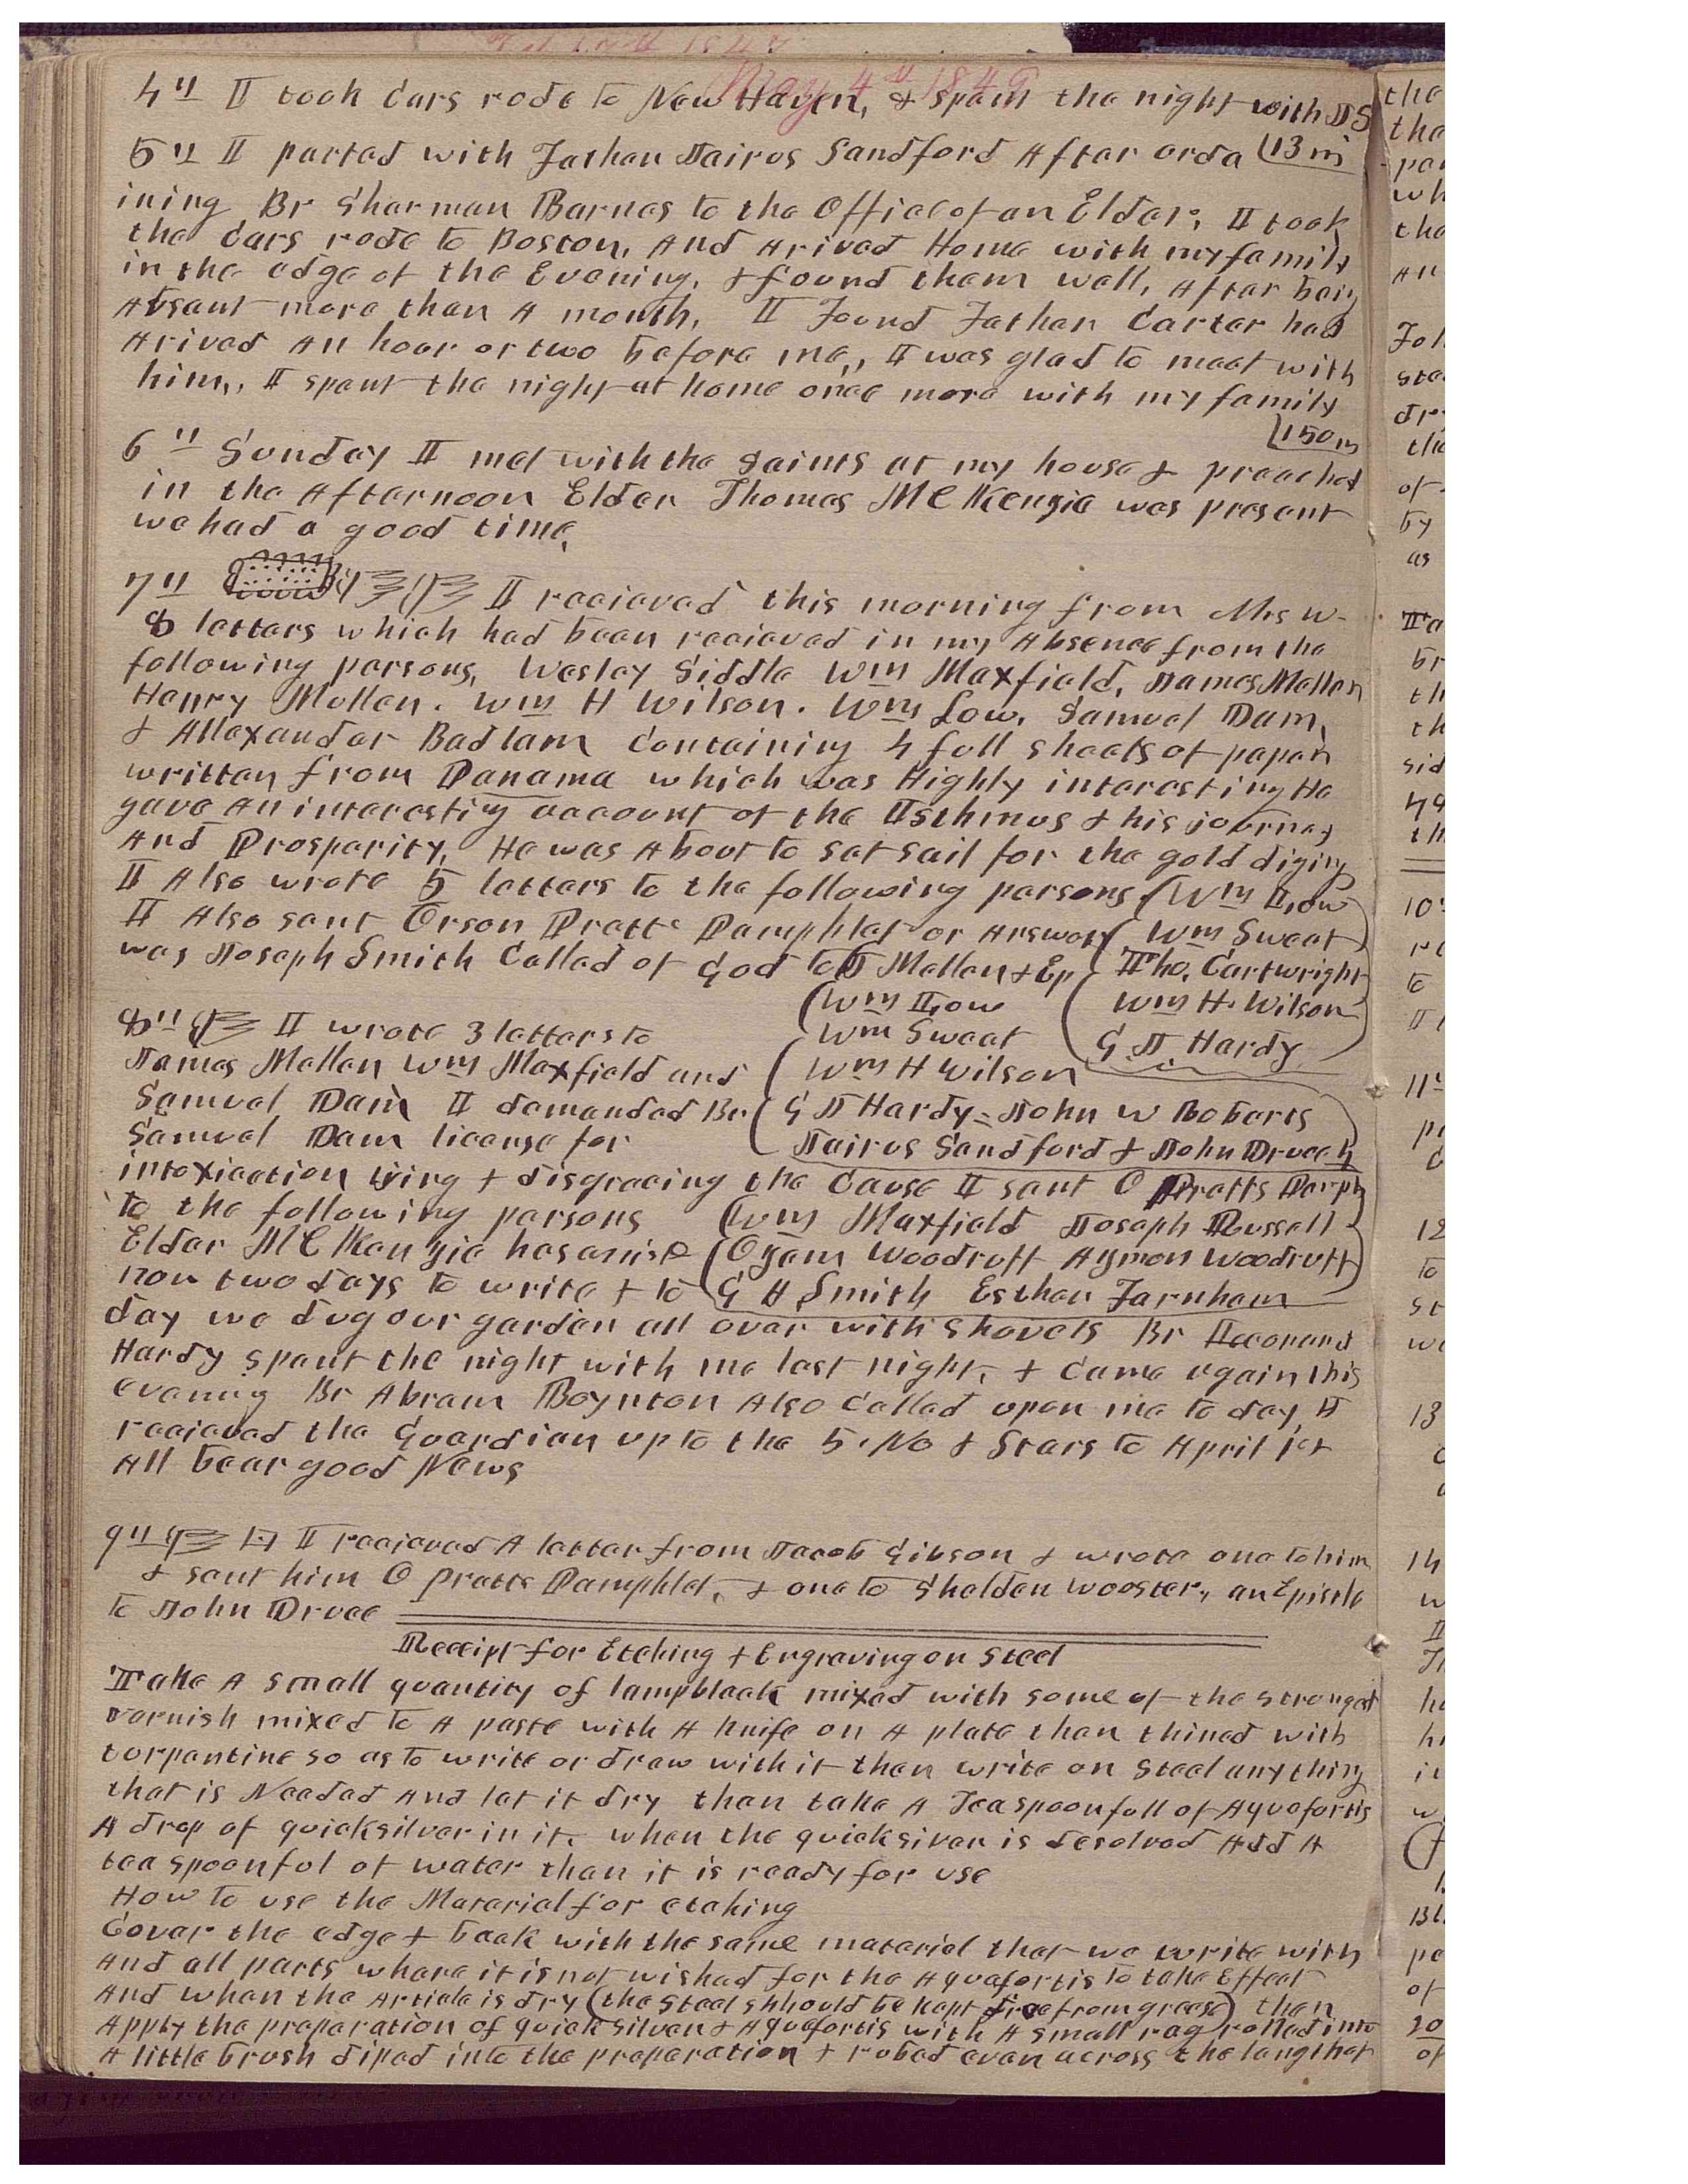 May 4th 1849
4th I took Cars rode to New Haven, & spent the night with JS
5th I parted with Father Jairus Sandford After orda 13 m
ining Br Sherman Barnes to the Office of an Elder, I took
the Cars rode to Boston, And Arived Home with my family
in the edge of the Evening, & found them well, After being
Absent more than A month, I Found Father Carter had
Arived An hour or two before me,, I was glad to meet with
him,, I spent the night at home once more with my family
150 m
6th Sunday I met with the saints at my house & preached
in the Afternoon Elder Thomas McKenzie was present
we had a good time,
7th I recieved this morning from Mrs W-
8 letters which had been recieved in my Absence from the
following persons, Wesley Siddle Wm Maxfield, James Mellen
Henry Mellen. Wm H Wilson. Wm Low, Samuel Dam,
& Allexander Badlam Containing 4 full sheets of paper
written from Panama which was Highly interesting He
gave An interesting account of the Isthmus & his journey
And Prosperity, He was About to set sail for the gold diging
I Also wrote 5 letters to the following persons (Wm Low
I Also sent Orson Pratts Pamphlet or Answer ( Wm Sweat
was Joseph Smith Called of God to J Mellen & Ep Tho, Cartwright
(Wm Low ( Wm H. Wilson
8th I wrote 3 letters to Wm Sweat G. J. Hardy
James Mellen Wm Maxfield and ( Wm H Wilson
Samuel Dam I demanded Br ( G J Hardy = John W Roberts
Samuel Dam license for Jairus Sandford & John Druce
intoxication lying & disgracing the Cause I sent O Pratts Pamph
to the following persons (Wm Maxfield Joseph Russell
Elder McKenzie has asist (Ozem Woodruff Azmon Woodruff
non two days to write & to G A Smith Esther Farnham
day we dug our garden all over with Shovels Br Leonard
Hardy spent the night with me last night, & Came again this
evening Br Abram Boynton Also Called upon me to day, I
recieved the Guardian up to the 5. No & Stars to April 1st
All bear good News
9th I recieved A letter from Jacob Gibson & wrote one to him
& sent him O Pratts Pamphlet, & one to Shelden Wooster,, an Epistle
to John Druce
Receipt for Etching & Engraving on Steel
Take A small quantity of lampblack mixed with some of the strongest
varnish mixed to A paste with A knife on A plate then thined with
turpentine so as to write or draw with it then write on Steel anything
that is Needed And let it dry then take A Teaspoonfull of Aquafortis
A drop of quicksilver in it. when the quicksiver is desolved Add A
teaspoonful of water then it is ready for use
How to use the Material for etching
Cover the edge & back with the same material that we write with
And all parts where it is not wished for the Aquafortis to take Effect
And when the Article is dry (the Steel shhould be kept free from grease) then
Apply the preparation of quicksilver & Aquafortis with A small rag rolled into
A little brush diped into the preparation & rubed even across the length of